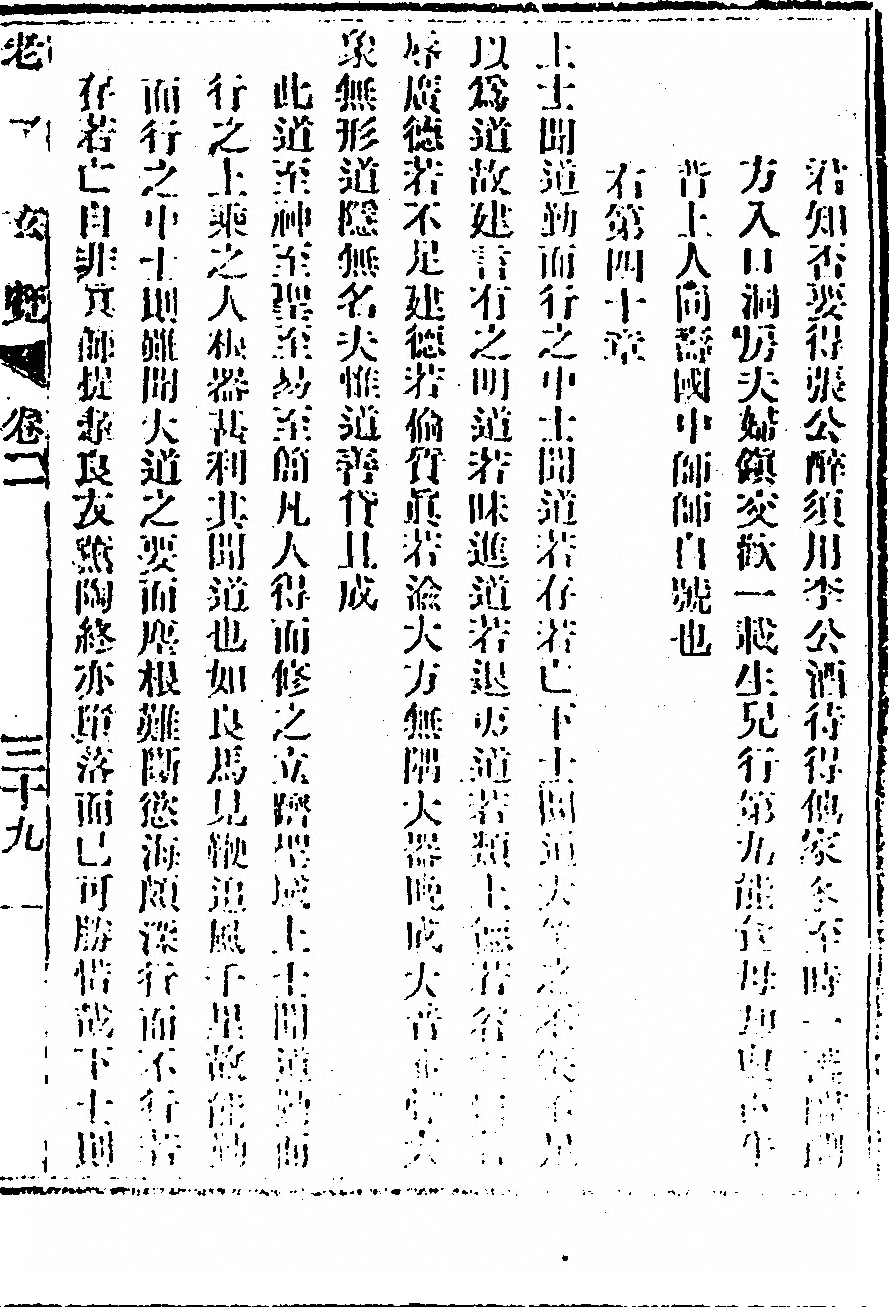 君知否要得張公醉須用李公酒待得他家冬至時一
方入口洞房夫婦鎮交歡一載生兒行第九能
昔上人向壽國中師師自號也
右第四十章
上士聞道勤而行之中士聞道若存若亡下士聞道大笑之不笑不足
以爲道故建言有之明道若昧進道若退夷道若類上德若谷大白若
辱廣德若不足建德若偷質眞若渝大方無隅大器晚成大音希聲大
象無形道隱無名夫惟道善貸且成
此道至神至聖至易至簡凡人得而修之立躋聖域上士聞道勤而
行之上乘之人根器甚利其聞道也如良馬見鞭追風千里故能勤
而行之中士則雖聞大道之要而塵根難斷慾海頗深行而不行若
存若亡自非眞師提奬良友薰陶終亦墮落而已可勝惜哉下士則
老子玄覽 卷二 三十九